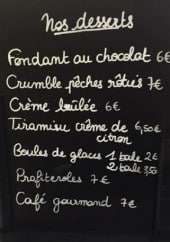 Nos desserts
Fondant au chocolat 6€
Crumble pêches rôties 7€
Crème brûlée 6€
Tiramisu crème de 6,50€
citron
Boules de glaces 1 boule 2€
2 boule 3,50
Profiteroles 7€
Café gourmand 7€